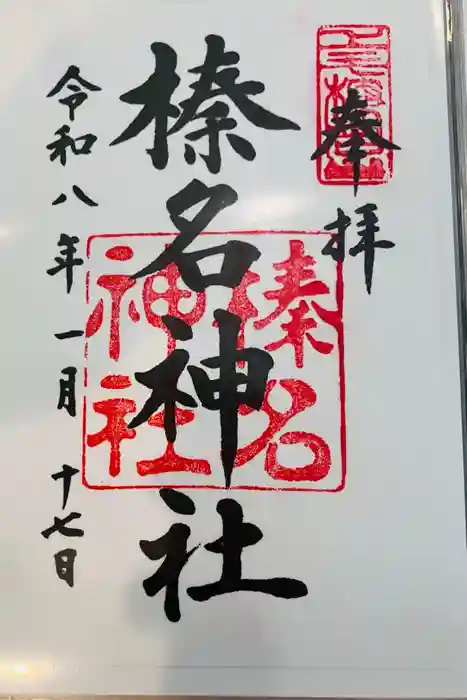 奉拝
榛名神社
榛名
神社
令和八年一月十七日